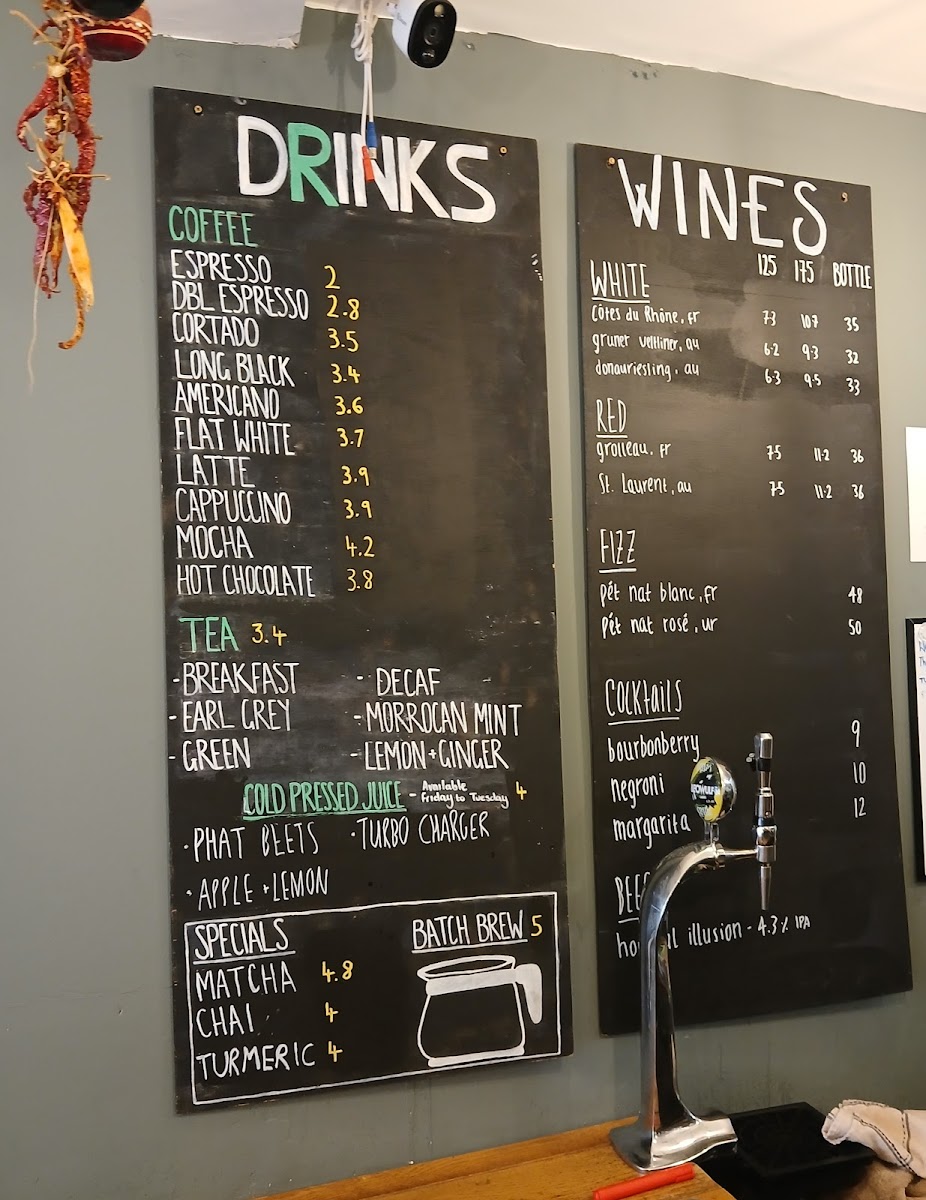 DRINKS
COFFEE
ESPRESSO 2
DBL ESPRESSO 2.8
CORTADO 3.5
LONG BLACK 3.4
AMERICANO 3.6
FLAT WHITE 3.7
LATTE 3.9
CAPPUCCINO 3.9
MOCHA 4.2
HOT CHOCOLATE 3.8
TEA 3.4
- BREAKFAST - DECAF
- EARL GREY - MORROCAN MINT
- GREEN - LEMON + GINGER
COLD PRESSED JUICE - Available Friday to Tuesday 4
· PHAT BEETS · TURBO CHARGER
· APPLE + LEMON
SPECIALS BATCH BREW 5
MATCHA 4.8
CHAI 4
TURMERIC 4
WINES
125 175 BOTTLE
WHITE
Côtes du Rhône, fr 7.3 10.7 35
gruner veltliner, au 6.2 9.3 32
donauriesling, au 6.3 9.5 33
RED
grolleau, fr 7.5 11.2 36
St. Laurent, au 7.5 11.2 36
FIZZ
pét nat blanc, fr 48
pét nat rosé, ur 50
COCKTAILS
bourbonberry 9
negroni 10
margarita 12
illusion - 4.3% IPA